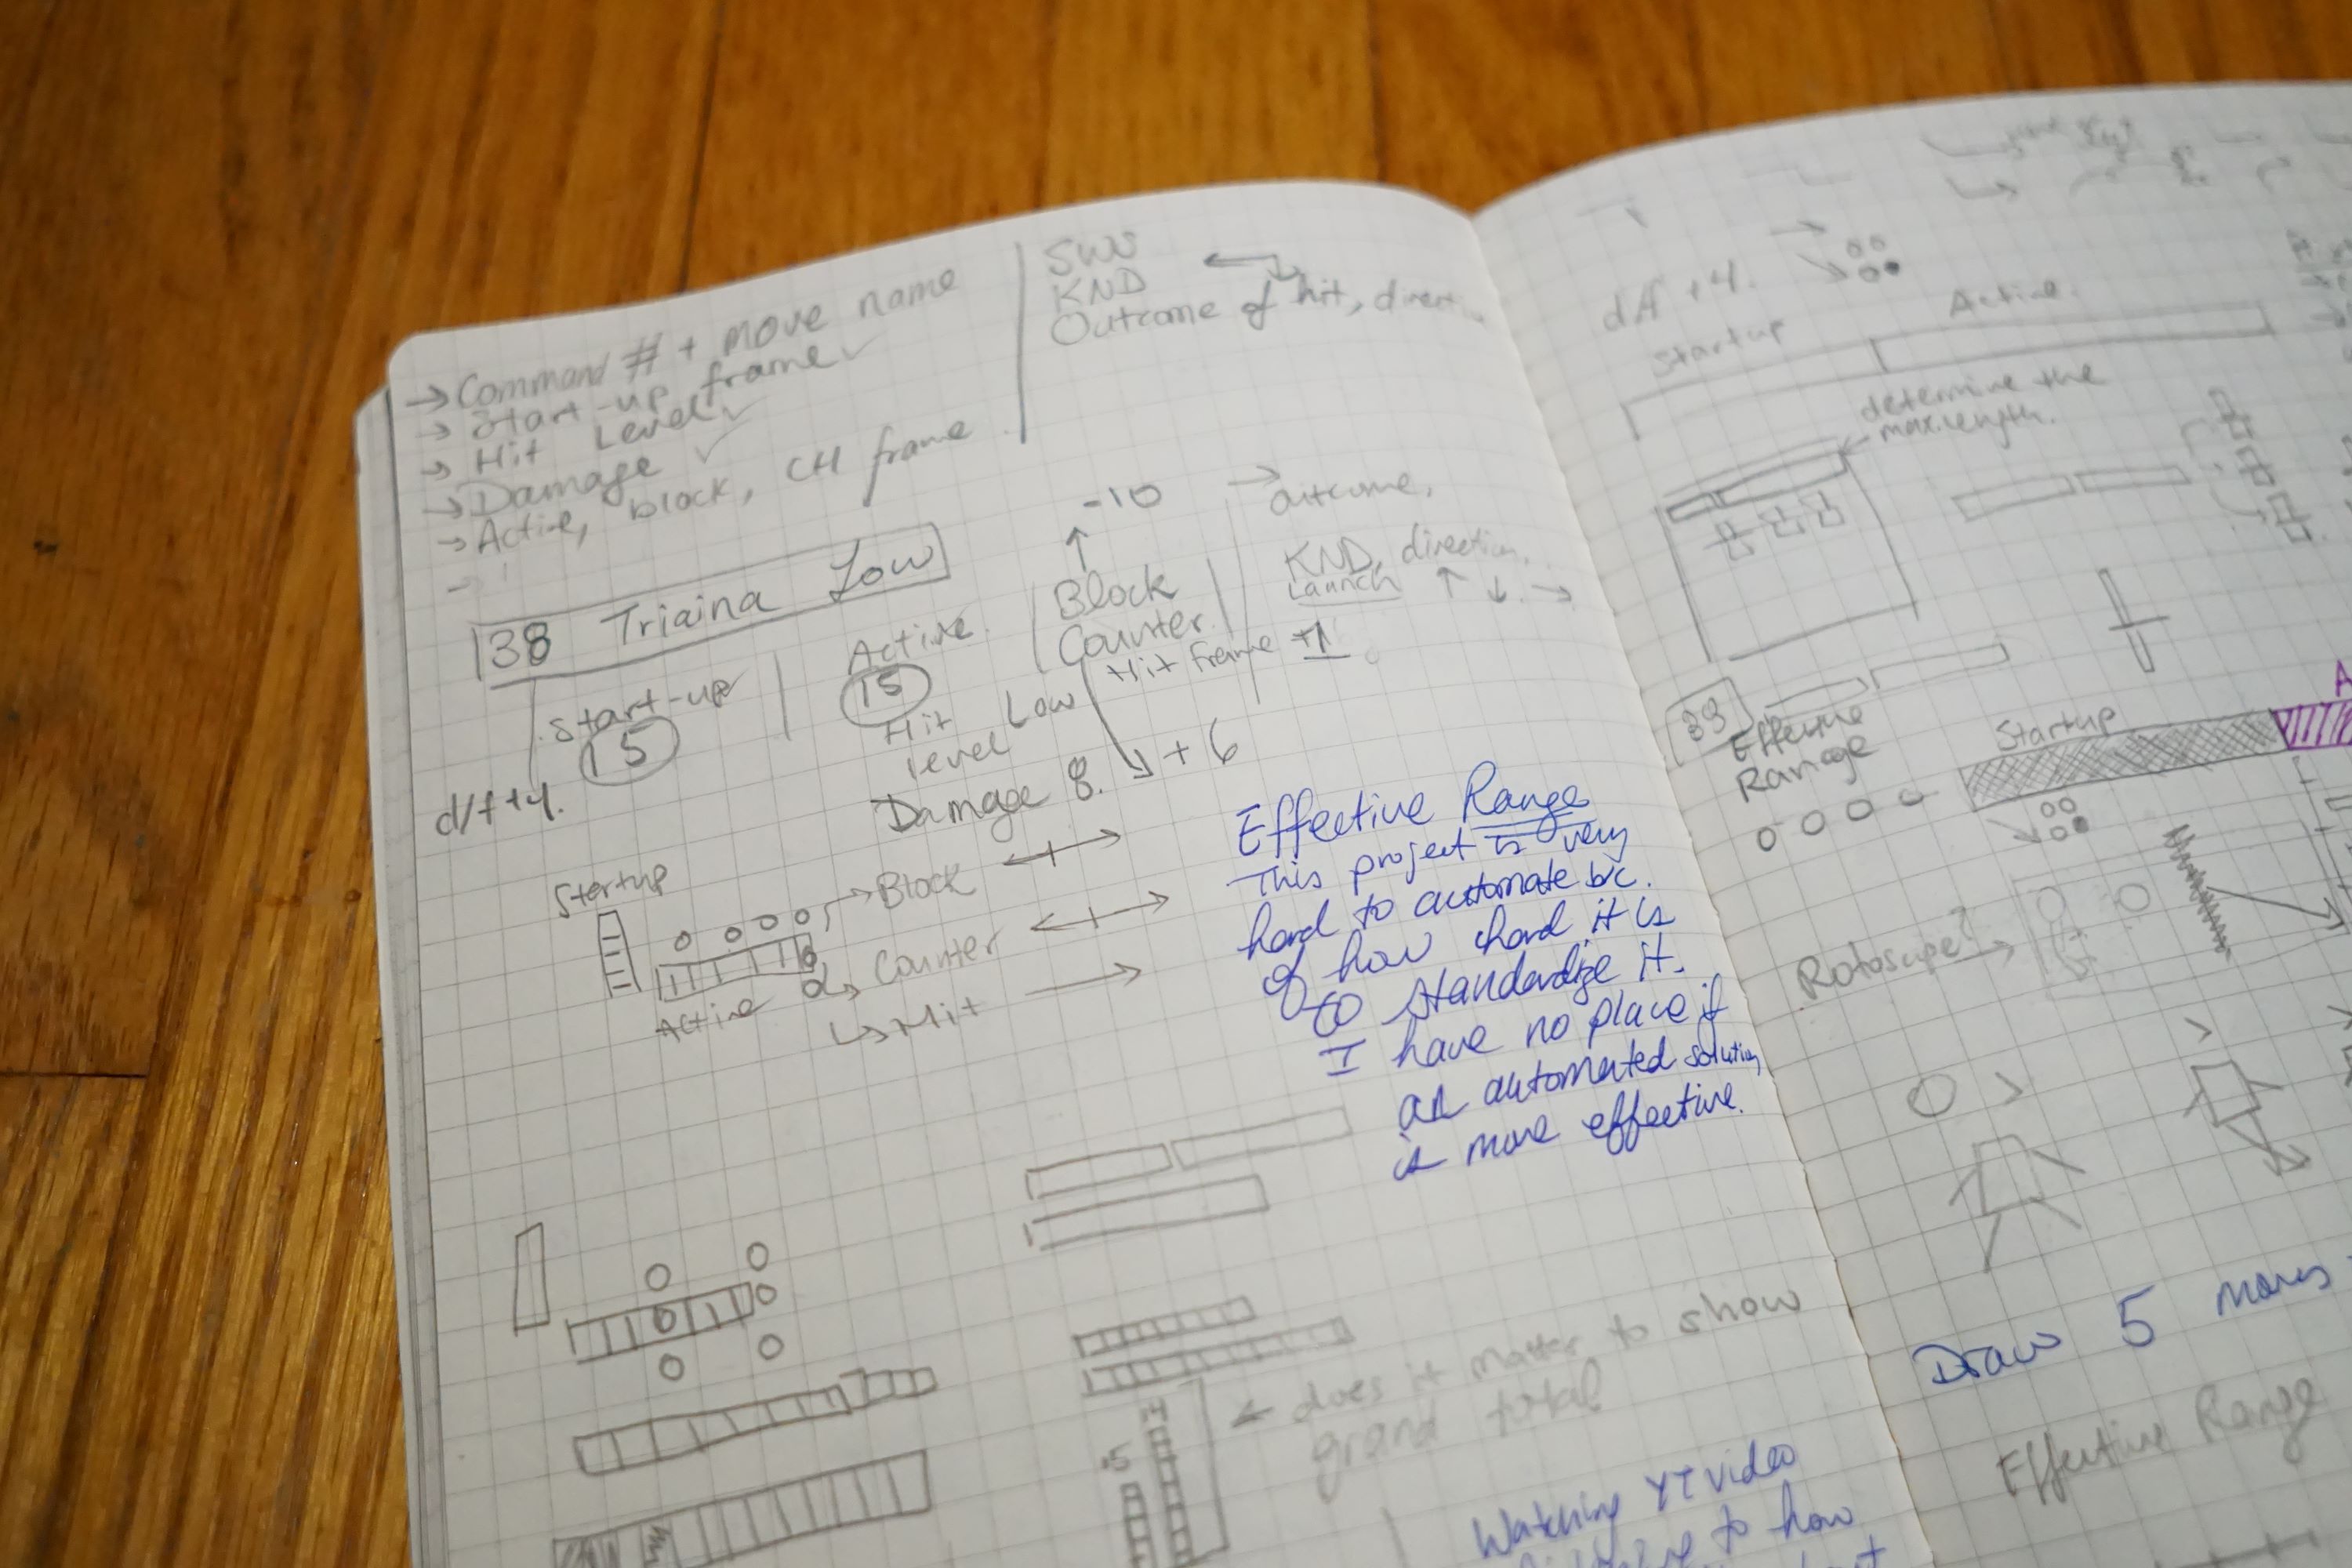 → Command # + move name
→ Start-up frame ✓
→ Hit Level ✓
→ Damage ✓
→ Active, block, CH frame
→
KND
Outcome of hit, direct
38 Triaina Low
Start-up
15
d/f+4.
Active.
15
Hit
level Low
Damage 8.
-10
↑
Block
Counter
Hit Frame +1
→ + 6
→ outcome,
KND, direction.
Launch ↑ ↓ →
Startup
Active
→ Block
→ Counter
↳ Hit
Effective Range
This project is very
hard to automate b/c.
of how hard it is
to standardize it.
I have no place if
an automated solution
is more effective.
← does it matter to show
grand total
.5
Watching YT video
to how
+4.
Startup
Active.
determine the
max.length.
39
Effective
Range
Startup
A
Rotoscope? →
Draw 5 moves
Effective Range